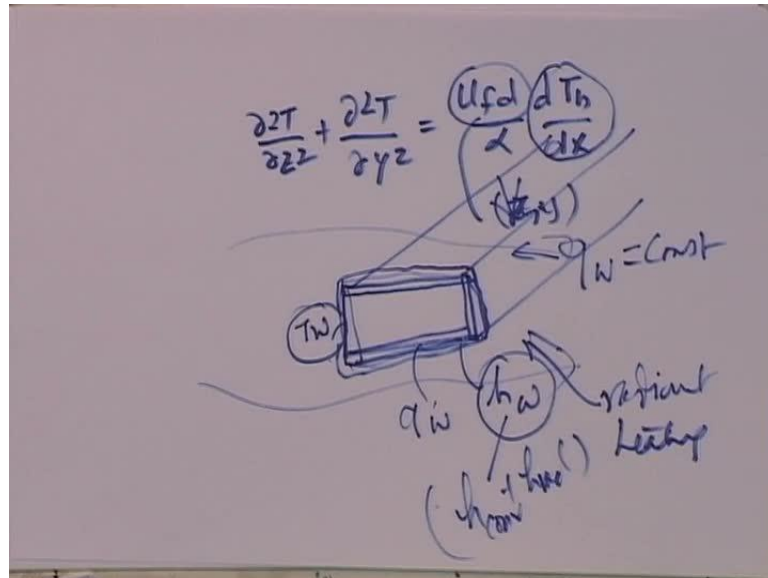 ∂2T/∂z2 + ∂2T/∂y2 = Ufd/α dTb/dx
qw = Const
Tw
qw
hw
radiant
heating